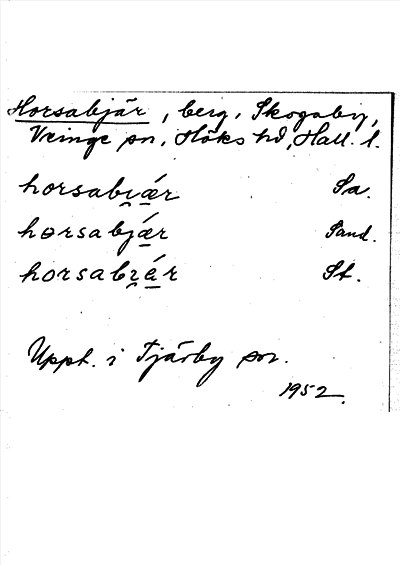 Horsabjär, berg, Skogaby,
Veinge sn, Höks hd, Hall. l.
horsabɪ̯ǽr Sa.
hɵrsabjǽr Sand.
horsabɪ̯ǽr St.
Uppt. i Tjärby sn.
1952.